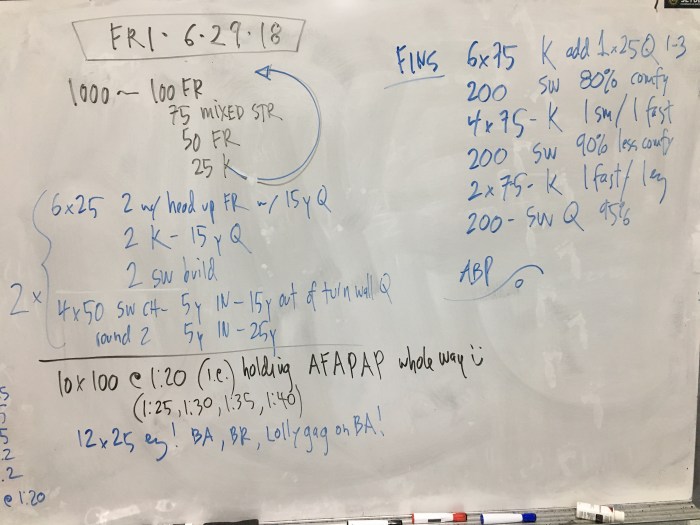 FRI. 6.29.18
1000 ~ 100 FR
75 MIXED STR
50 FR
25 K
2x
6x25 2 w/ head up FR w/ 15y Q
2 K - 15y Q
2 SW build
4x50 SW CH- 5y IN - 15y out of turn wall Q
round 2 5y IN - 25y
10x100 @ 1:20 (i.e.) holding AFAPAP whole way
(1:25, 1:30, 1:35, 1:40)
12x25 ez! BA, BR, Lollygag on BA!
FINS 6x75 K add 1x25Q 1-3
200 SW 80% comfy
4x75- K 1 sm/1 fast
200 SW 90% less comfy
2x75-K 1 fast/1 ez
200- SW Q 95%
ABP
5
5
5
.2
.2
@ 1:20